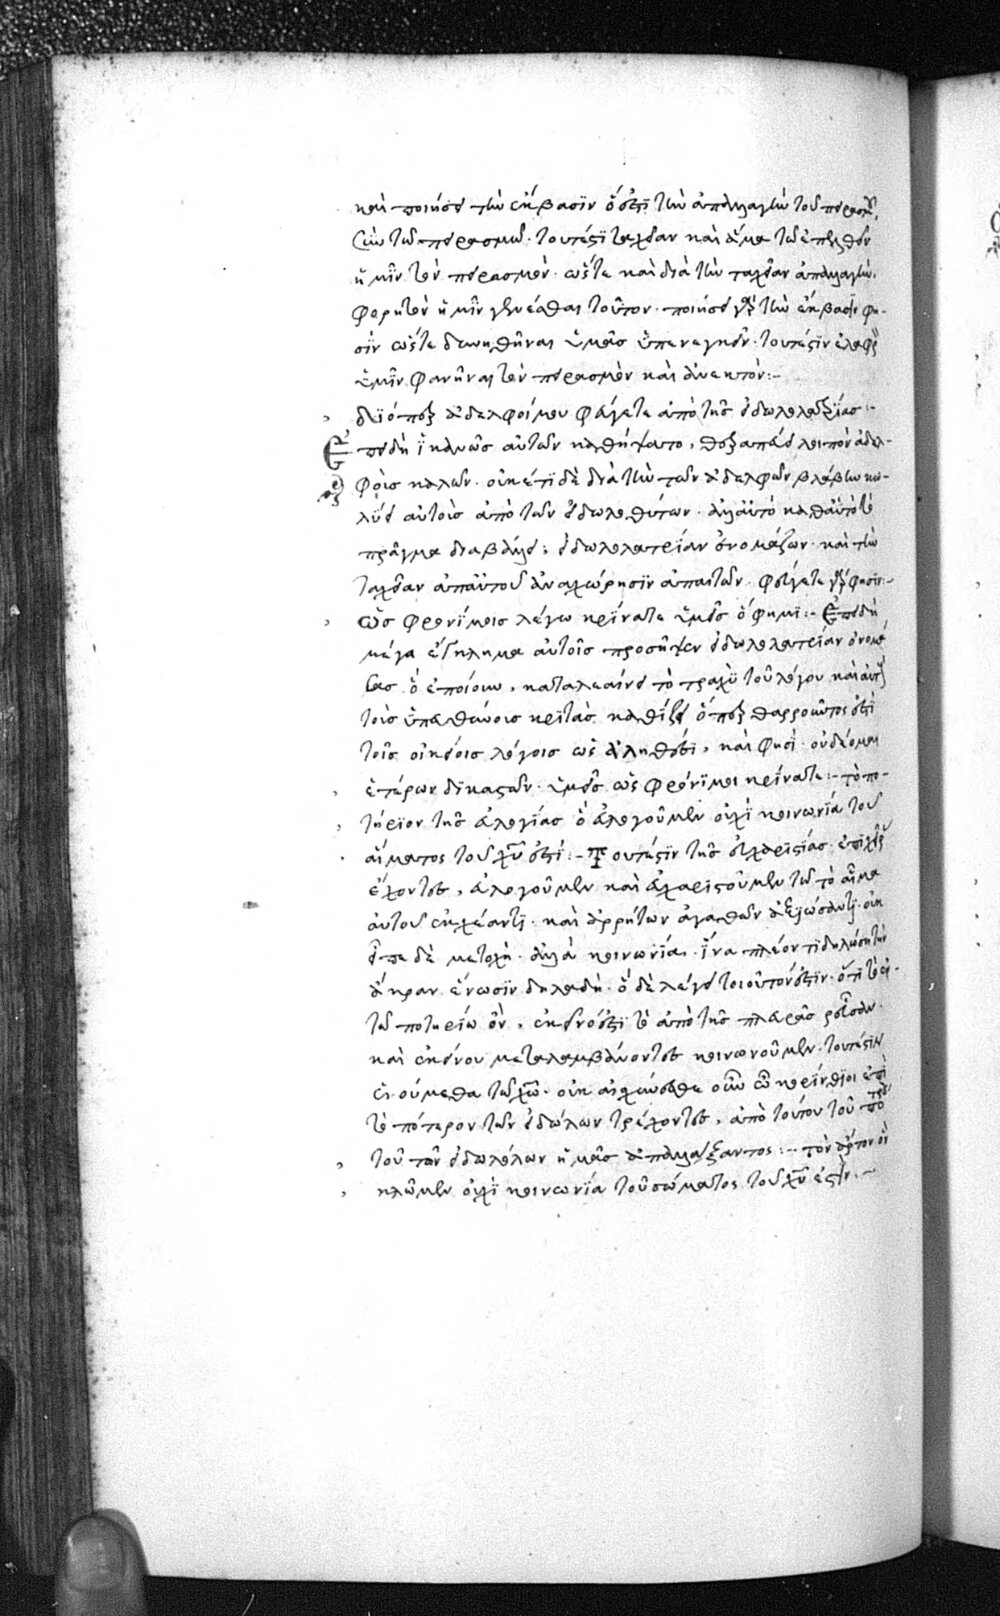 καὶ ποιήσει τὴν ἔκβασιν ὅ ἐστι τὴν ἀπαλλαγὴν τοῦ πειρασμοῦ,
σὺν τῷ πειρασμῷ. τουτέστι ταχεῖαν καὶ ἅμα τῷ ἐπελθεῖν
ἡμῖν τὸν πειρασμόν. ὥστε καὶ διὰ τὴν ταχεῖαν ἀπαλλαγὴν,
φορητὸν ἡμῖν γενέσθαι τοῦτον. ποιήσει γὰρ τὴν ἔκβασιν φη-
σὶν ὥστε δυνηθῆναι ὑμᾶς ὑπενεγκεῖν. τουτέστιν ἐλαφρὸν
ὑμῖν φανῆναι τὸν πειρασμὸν καὶ ἀνεκτόν:-
διόπερ ἀδελφοί μου φεύγετε ἀπὸ τῆς εἰδωλολατρείας:-
Ἐπειδὴ ἱκανῶς αὐτῶν καθήψατο, θεραπεύει λοιπὸν ἀδελ-
φοὺς καλῶν. οὐκέτι δὲ διὰ τὴν τῶν ἀδελφῶν βλάβην κω-
λύει αὐτοὺς ἀπὸ τῶν εἰδωλοθύτων. ἀλλ' αὐτὸ καθ' αὑτὸ τὸ
πρᾶγμα διαβάλλει: εἰδωλολατρείαν ὀνομάζων. καὶ τὴν
ταχεῖαν ἀπ' αὐτοῦ ἀναχώρησιν ἀπαιτῶν. φεύγετε γάρ φησιν:-
ὡς φρονίμοις λέγω κρίνατε ὑμεῖς ὅ φημι:- Ἐπειδὴ
μέγα ἔγκλημα αὐτοῖς προσῆψεν εἰδωλολατρείαν ὀνομά
σας ὃ ἐποίουν, καταλεαίνει τὸ τραχὺ τοῦ λόγου καὶ αὐτοὺς
τοὺς ὑπευθύνους κριτὰς καθίζει ὅπερ θαρροῦντος ἐστὶ
τοῖς οἰκείοις λόγοις ὡς ἀληθέσι, καὶ φησὶ. οὐ δέομαι
ἑτέρων δικαστῶν. ὑμεῖς ὡς φρόνιμοι κρίνατε:- τὸ πο-
τήριον τῆς εὐλογίας ὃ εὐλογοῦμεν οὐχὶ κοινωνία τοῦ
αἵματος τοῦ χ̅υ̅ ἐστί:- Τουτέστιν τῆς εὐχαριστίας. ἐπὶ χεῖρας
ἔχοντες, εὐλογοῦμεν καὶ εὐχαριστοῦμεν τῷ τὸ αἷμα
αὐτοῦ ἐκχέαντι. καὶ ἀρρήτων ἀγαθῶν ἀξιώσαντι. οὐκ
εἶπε δὲ μετοχὴ. ἀλλὰ κοινωνία. ἵνα πλέον τι δηλώσῃ τὴν
ἄκραν ἕνωσιν δηλαδή. ὃ δὲ λέγει τοιοῦτόν ἐστιν. ὅτι τὸ ἐν
τῷ ποτηρίῳ ὂν, ἐκεῖνό ἐστι τὸ ἀπὸ τῆς πλευρᾶς ῥεῦσαν.
καὶ ἐκείνου μεταλαμβάνοντες κοινωνοῦμεν. τουτέστιν
ἑνούμεθα τῷ χ̅ω̅. οὐκ αἰσχύνεσθε οὖν ὦ κορίνθιοι ἐπὶ
τὸ ποτήριον τῶν εἰδώλων τρέχοντες, ἀπὸ τούτου τοῦ πο
τοῦ τῶν εἰδώλων ἡμᾶς ἀπαλλάξαντος:- τὸν ἄρτον ὃν
κλῶμεν οὐχὶ κοινωνία τοῦ σώματος τοῦ χ̅υ̅ ἐστιν:-